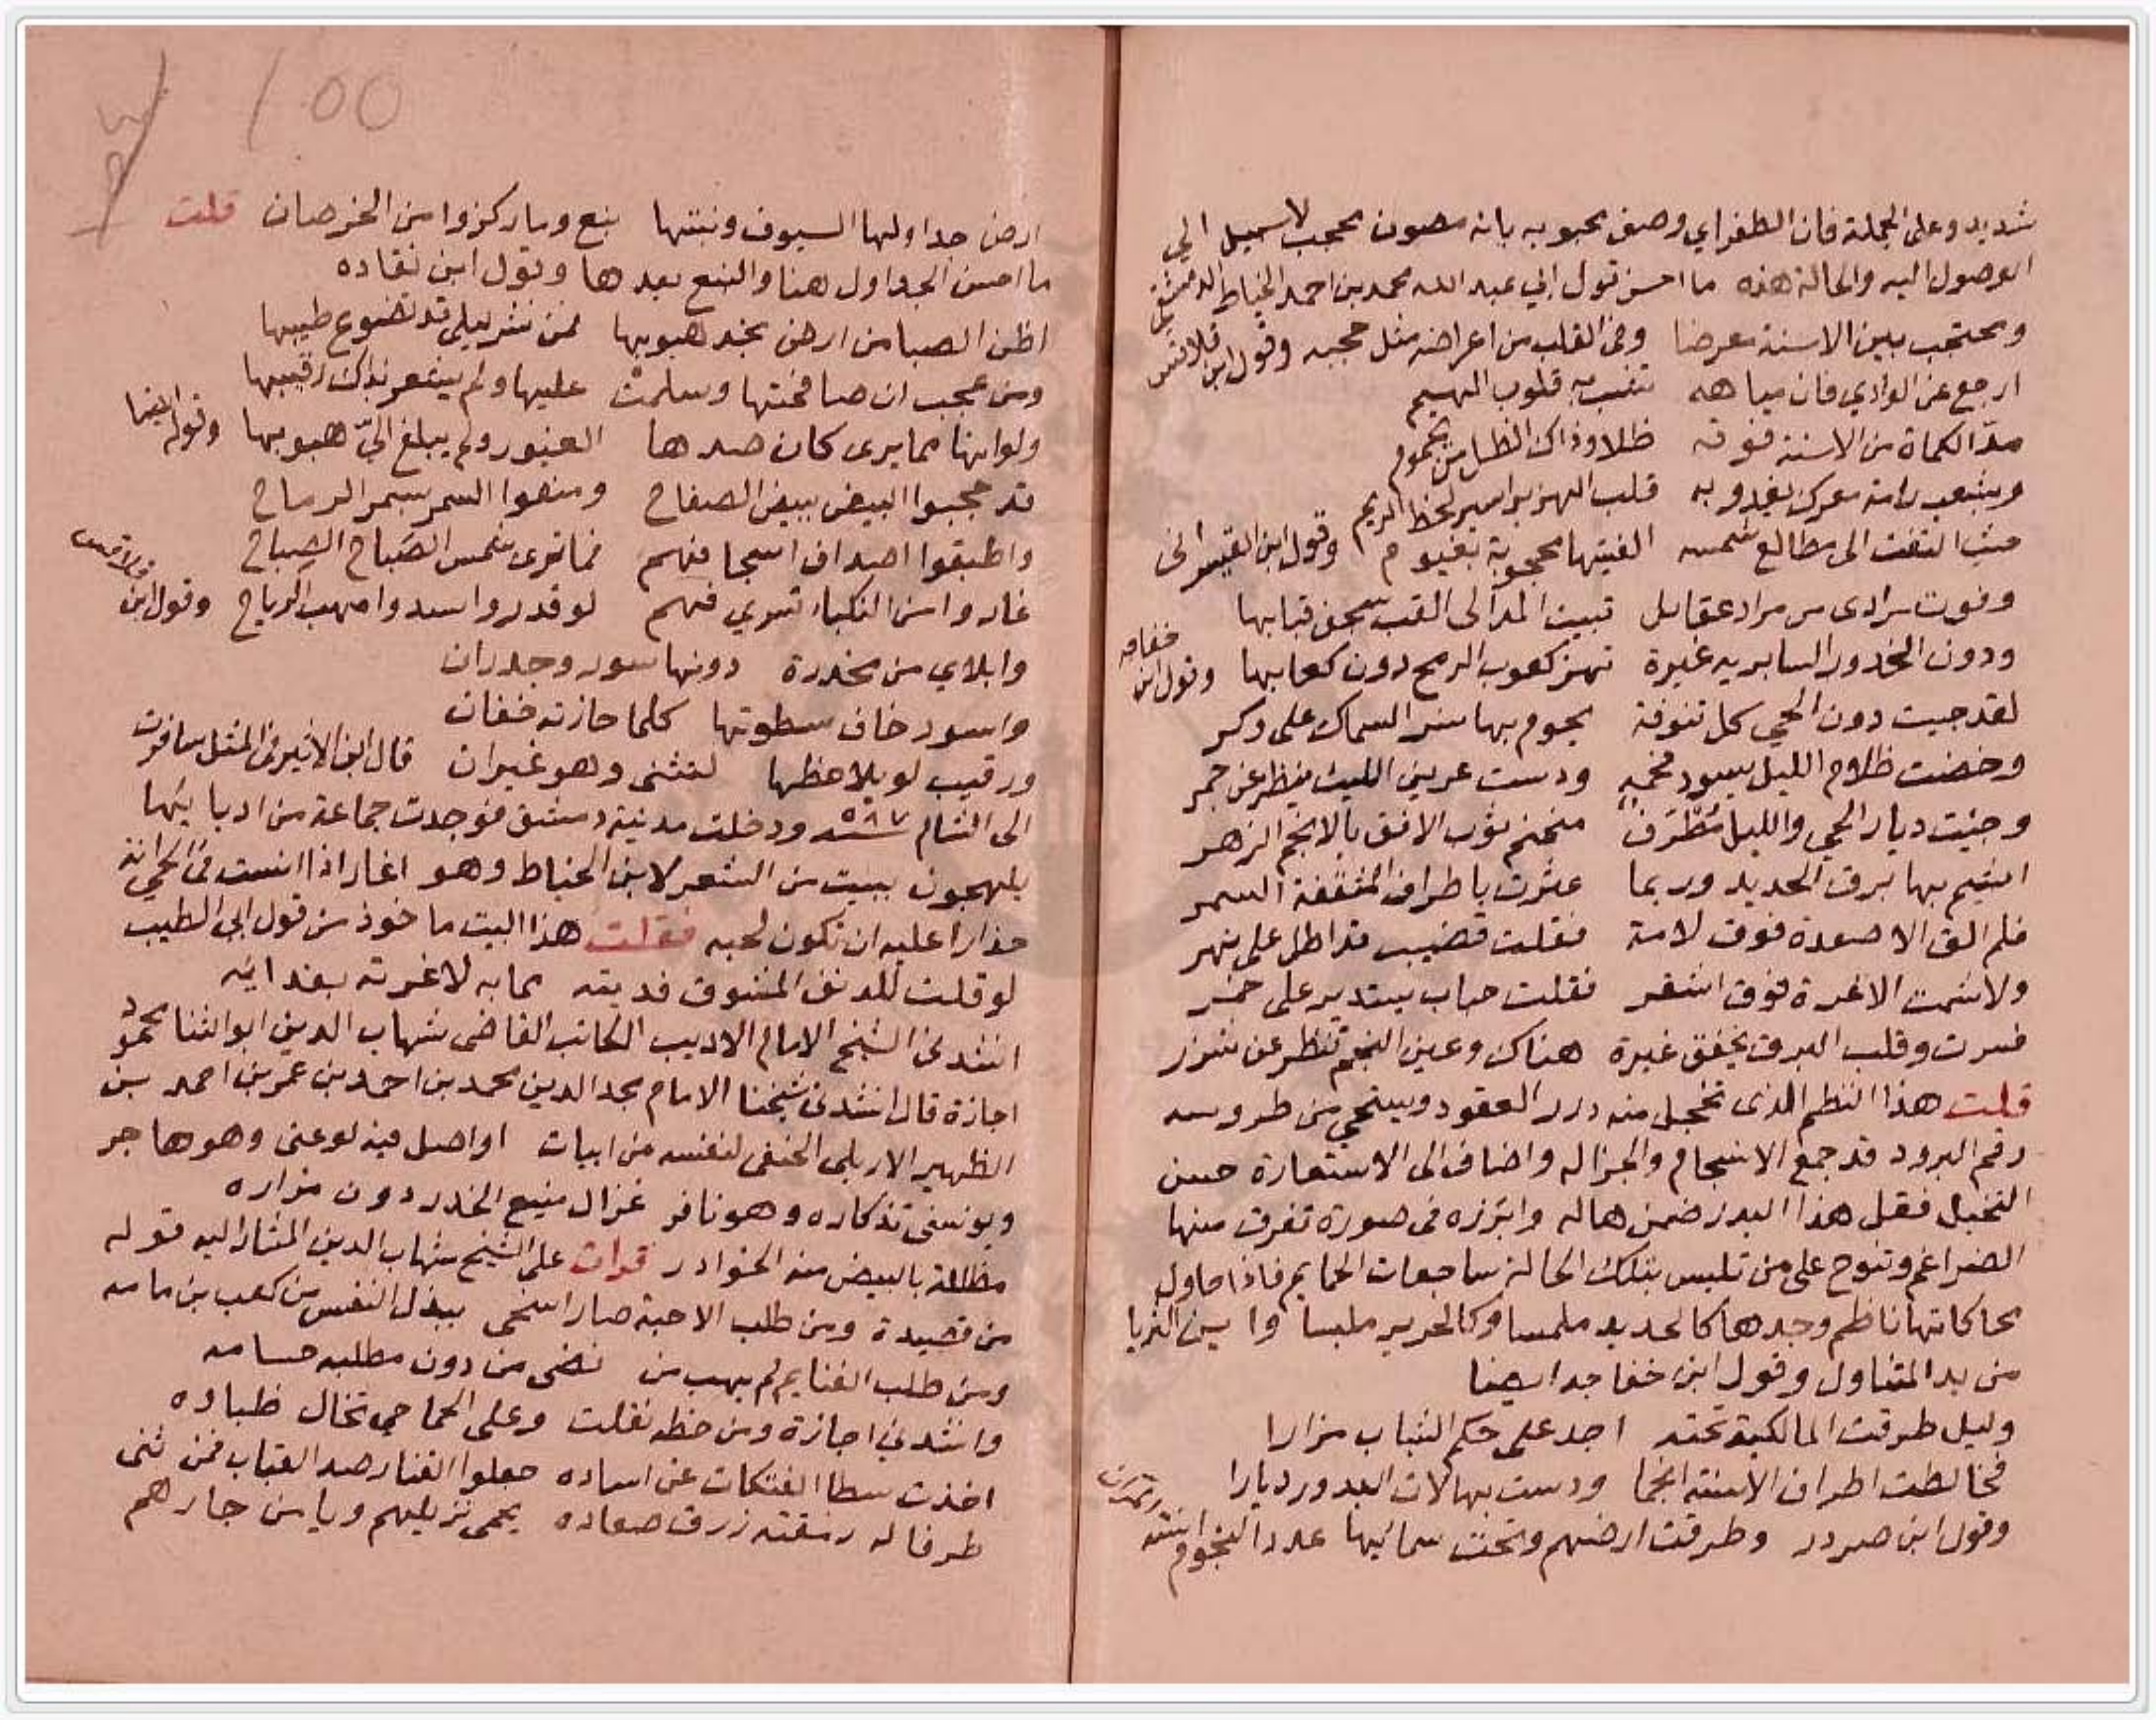 شديد وعلى الجملة فان الطغراي وصف محبوبه بانه مصون محجب لا سبيل الي
الوصول اليه والحالة هذه ما احسن قول ابي عبد الله محمد بن احمد الخياط الدمشقي
ومحتجب بين الاسنة معرضا وفي القلب من اعراضه مثل حجبه وقول ابن قلاقس
ارجع عن الوادي فان مياهه تنفب به قلوب الهيم
مدّ الكماة من الاسنة فوقه ظلا وذاك الظل من يحموم
وبشعب رامة معرك يغدو به قلب الهزبر اسير لحظ الريم
حيث التفت الى مطالع شمسه الفيتها محجوبة بغيوم وقول ابن القيسراني
وفوت مرادى من مراد عقايل تبيت المدالى القب سجف قبابها
ودون الخدور السابريه غيرة تهز كعوب الرمح دون كعابها وقول ابن خفاجه
لقد جبت دون الحي كل تنوفة يحوم بها نسر السماك على وكر
وخضت ظلام الليل يسود فحمه ودست عرين الليث ينظر عن جمر
وجئت ديار الحي والليل مُطْرَف منمنم ثوب الافق بالانجم الزهر
اشيم بها برق الحديد وربما عثرت باطراف المثقفة السمر
فلم الق الا صعدة فوق لامة فقلت قضيب قد اطل على نهر
ولا شمت الا غرة فوق اشقر فقلت حباب يستدير على خمر
فسرت وقلب البرق يخفق غيرة هناك وعين النجم تنظر عن شزر
قلت هذا النظم الذى تخجل منه درر العقود ويستحي من طروسه
رقم البرود قد جمع الانسجام والجزاله واضاف الى الاستعارة حسن
التخيل فقل هذا البدر ضمن هاله وابرزه فى صورة تفرق منها
الضراغم وتنوح على من تلبس بتلك الحالة ساجعات الحمايم فاذا حاول
محاكاتها ناظم وجدها كالحديد ملمسا وكالحرير ملبسا واين الثريا
من يد المتناول وقول ابن خفاجه ايضا
وليل طرقت المالكية تحته اجد على حكم الشباب مزارا
فخالطت اطراف الاسنة انجما ودست بهالات البدور ديارا
وقول ابن صردر وطرقت ارضهم وتحت سمائها عدد النجوم اسنة
ارض جداولها السيوف ونبتها نبع وما ركزوا من الخرصان قلت
ما احسن الجداول هنا والنبع بعدها وقول ابن نقاده
اظن الصبا من ارض نجد هبوبها فمن نشر ليلى قد تضوع طيبها
ومن عجب ان صافحتها وسلمت عليها ولم يشعر بذاك رقيبها
ولوانها مما يرى كان صدها الغيور ولم يبلغ اليّ هبوبها وقوله ايضا
قد حجبوا البيض ببيض الصفاح ومنعوا السمر بسمر الرماح
واطبقوا اصداف اسجافهم فما ترى شمس الصَباح الصِباح
غاروا من النكباء تسري فهم لو قدروا سدوا مهب الرياح وقول ابن قلاقس
وابلاي من مخدرة دونها سور وجدران
واسود خاف سطوتها كلما حازته خفان
ورقيب لو يلاحظها لنثنى وهو غيران قال ابن الاثير في المثل سافرت
الى الشام سنة ٥٨٧ ودخلت مدينة دمشق فوجدت جماعة من ادبايها
يلهجون ببيت من الشعر لابن الخياط وهو اغار اذا انست في الحي انة
حذارا عليه ان تكون لحبه فقلت هذا البيت ماخوذ من قول ابى الطيب
لو قلت للدنف المشوق فديته مما به لاغرته بفدايه
انشدني الشيخ الامام الاديب الكاتب القاضى شهاب الدين ابو الثنا محمود
اجازة قال انشدني شيخنا الامام مجد الدين محمد بن احمد بن عمر بن احمد بن
الظهير الاربلى الحنفى لنفسه من ابيات اواصل فيه لوعتى وهو هاجر
ويونسنى تذكاره وهو نافر غزال منيع الخدر دون مزاره
مظللة بالبيض منه الخوادر قرات على الشيخ شهاب الدين المشار اليه قوله
من قصيدة ومن طلب الاحبة صار اسخى ببذل النفس من كعب بن مامه
ومن طلب الغنايم لم يهب من نضى من دون مطلبه حسامه
وانشدني اجازة ومن خطه نقلت وعلى الحما حي تخال ظباده
اخذت سطا الفتكات عن اساده جعلوا القنا رصد العتاب فمن ثنى
طرفا له رشقته زرق صعاده يحمى نزيلهم ويا من جارهم